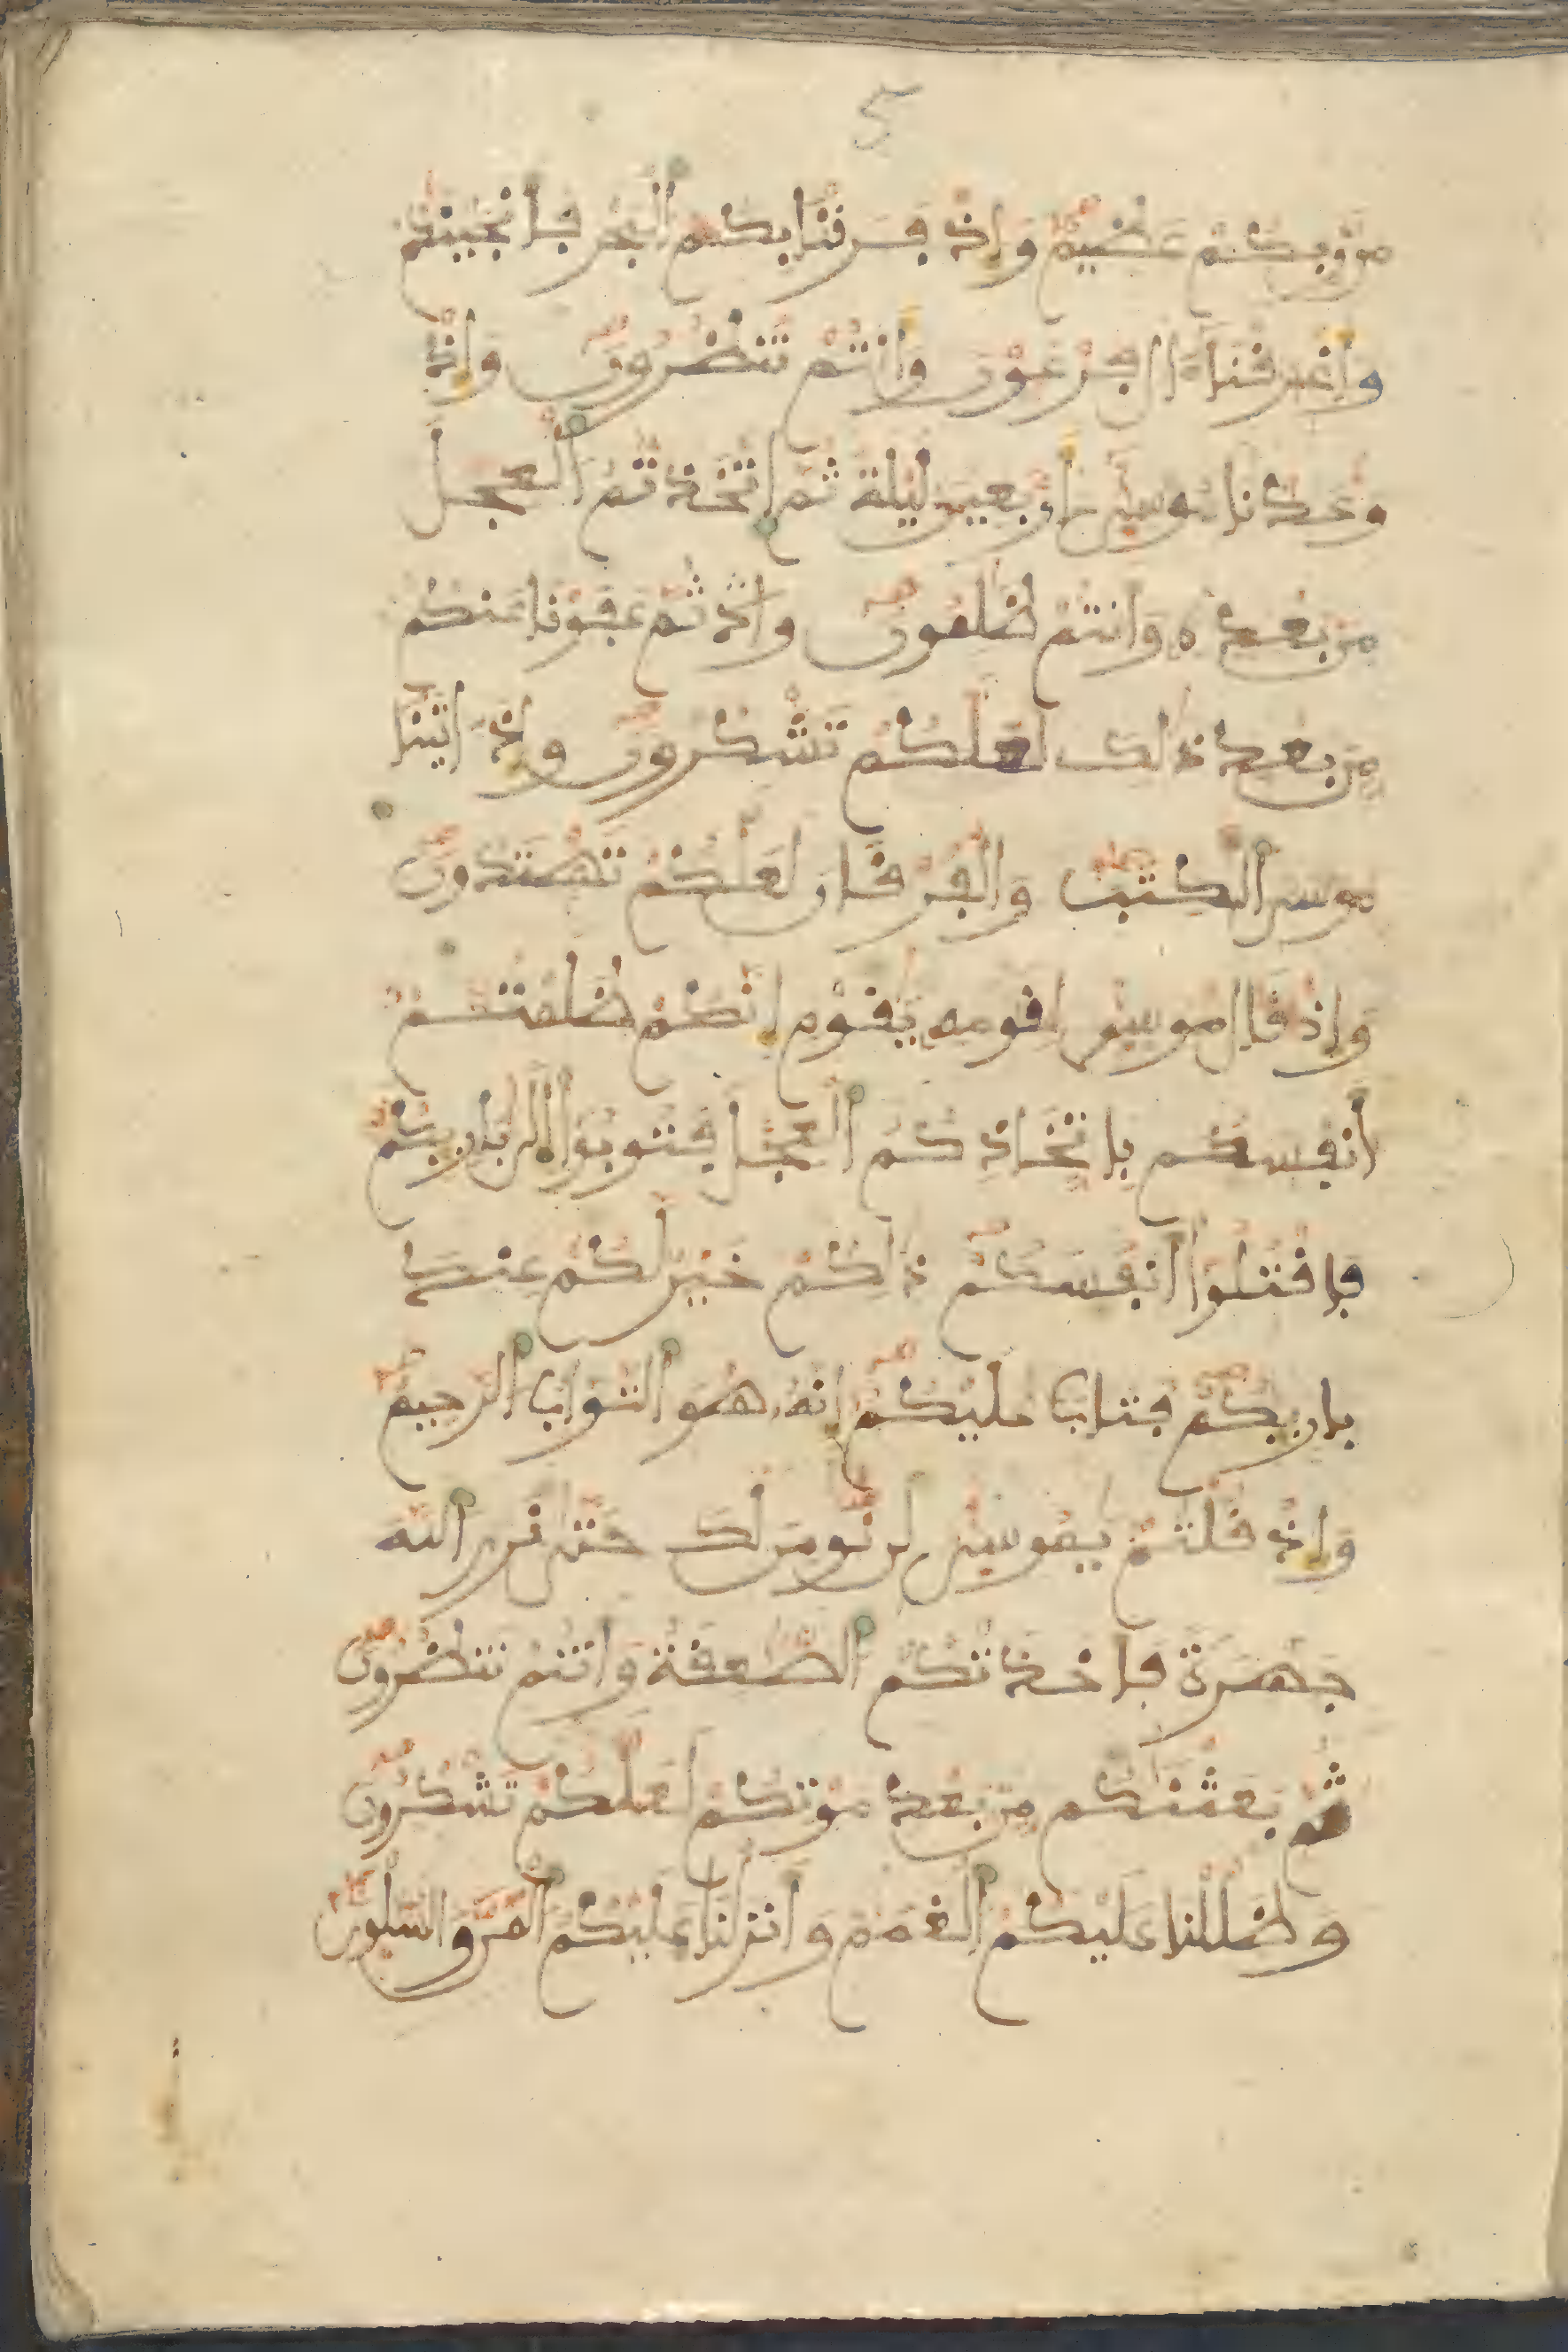 5
من ربكم عظيم وإذ فرقنا بكم البحر فأنجينكم
وأغرقنا ءال فرعون وأنتم تنظرون وإذ
وعدنا موسى أربعين ليلة ثم اتخذتم العجل
من بعده وأنتم ظلمون ثم عفونا عنكم
من بعد ذلك لعلكم تشكرون وإذ ءاتينا
موسى الكتب والفرقان لعلكم تهتدون
وإذ قال موسى لقومه يقوم إنكم ظلمتم
أنفسكم باتخاذكم العجل فتوبوا إلى بارئكم
فاقتلوا أنفسكم ذلكم خير لكم عند
بارئكم فتاب عليكم إنه هو التواب الرحيم
وإذ قلتم يموسى لن نومن لك حتى نرى الله
جهرة فأخذتكم الصعقة وأنتم تنظرون
ثم بعثنكم من بعد موتكم لعلكم تشكرون
وظللنا عليكم الغمم وأنزلنا عليكم المن والسلوى